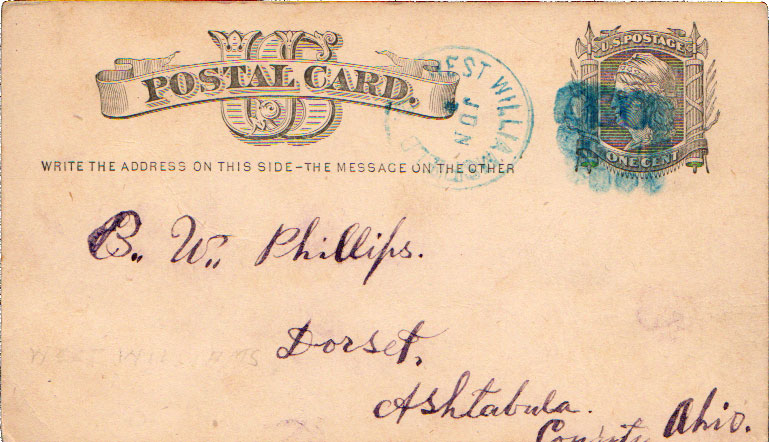 US
POSTAL CARD.
WRITE THE ADDRESS ON THIS SIDE-THE MESSAGE ON THE OTHER
WEST WILLIAMS
JUN
U.S. POSTAGE
ONE CENT
B. W. Phillips.
Dorset,
Ashtabula.
County Ohio.